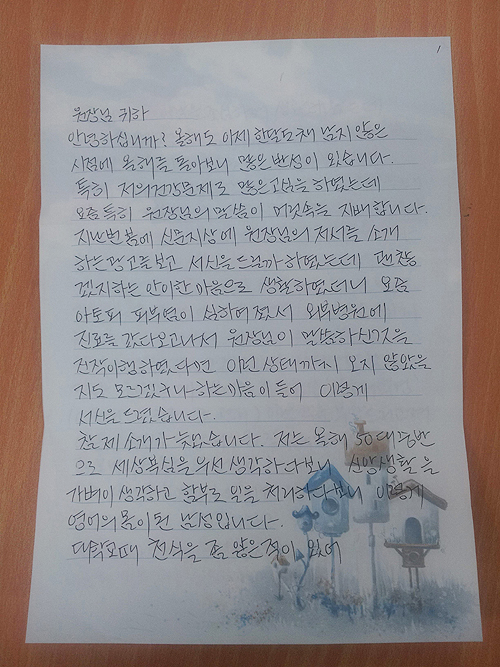 1
원장님 귀하
안녕하십니까? 올해도 이제 한달도 채 남지 않은
시점에 올해를 돌아보니 많은 반성이 있습니다.
특히 저의 건강문제로 많은 고심을 하였는데
요즘 특히 원장님의 말씀이 머릿속을 지배합니다.
지난번 봄에 신문지상에 원장님의 저서를 소개
하는 광고를 보고 서신을 드릴까 하였는데 괜찮
겠지하는 안이한 마음으로 생활하였더니 요즘
아토피 피부염이 심하여져서 외부병원에
진료를 갔다오고나서 원장님이 말씀하신것을
진작 이행하였다면 이런 상태까지 오지 않았을
지도 모르겠구나 하는 마음이 들어 이렇게
서신을 드렸습니다.
참 제 소개가 늦었습니다. 저는 올해 50대 중반
으로 세상욕심을 우선 생각하다보니 신앙생활을
가벼이 생각하고 함부로 일을 처리하다보니 이렇게
영어의 몸이 된 남성입니다.
대학교때 천식을 좀 앓은적이 있어